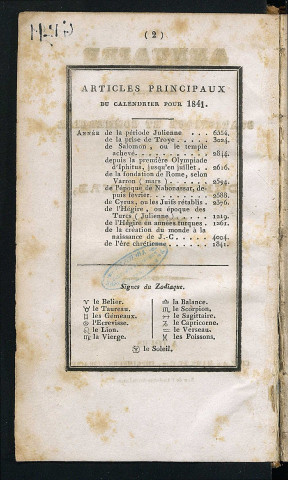 ( 2 )
ARTICLES PRINCIPAUX
DU CALENDRIER POUR 1841.
ANNÉE de la période Julienne . . . 6554.
de la prise de Troye . . . . 3024.
de Salomon, ou le temple
achevé . . . . . . . . . 2844.
depuis la première Olympiade
d'Iphitus, jusqu'en juillet . . 2616.
de la fondation de Rome, selon
Varron ( mars ) . . . . . . 2594.
de l'époque de Nabonassar, de-
puis fevrier . . . . . . . 2588.
de Cyrus, ou les Juifs rétablis . 2376.
de l'Hégire, ou époque des
Turcs ( Julienne ) . . . . . 1219.
de l'Hégire en années turques . 1261.
de la création du monde à la
naissance de J.-C . . . . . 4004.
de l'ère chrétienne . . . . . 1841.
Signes du Zodiaque.
♈ le Belier. ♎ la Balance.
♉ le Taureau. ♏ le Scorpion,
♊ les Gémeaux. ♐ le Sagittaire.
♋ l'Ecrevisse. ♑ le Capricorne.
♌ le Lion. ♒ le Verseau.
♍ la Vierge. ♓ les Poissons,
le Soleil.